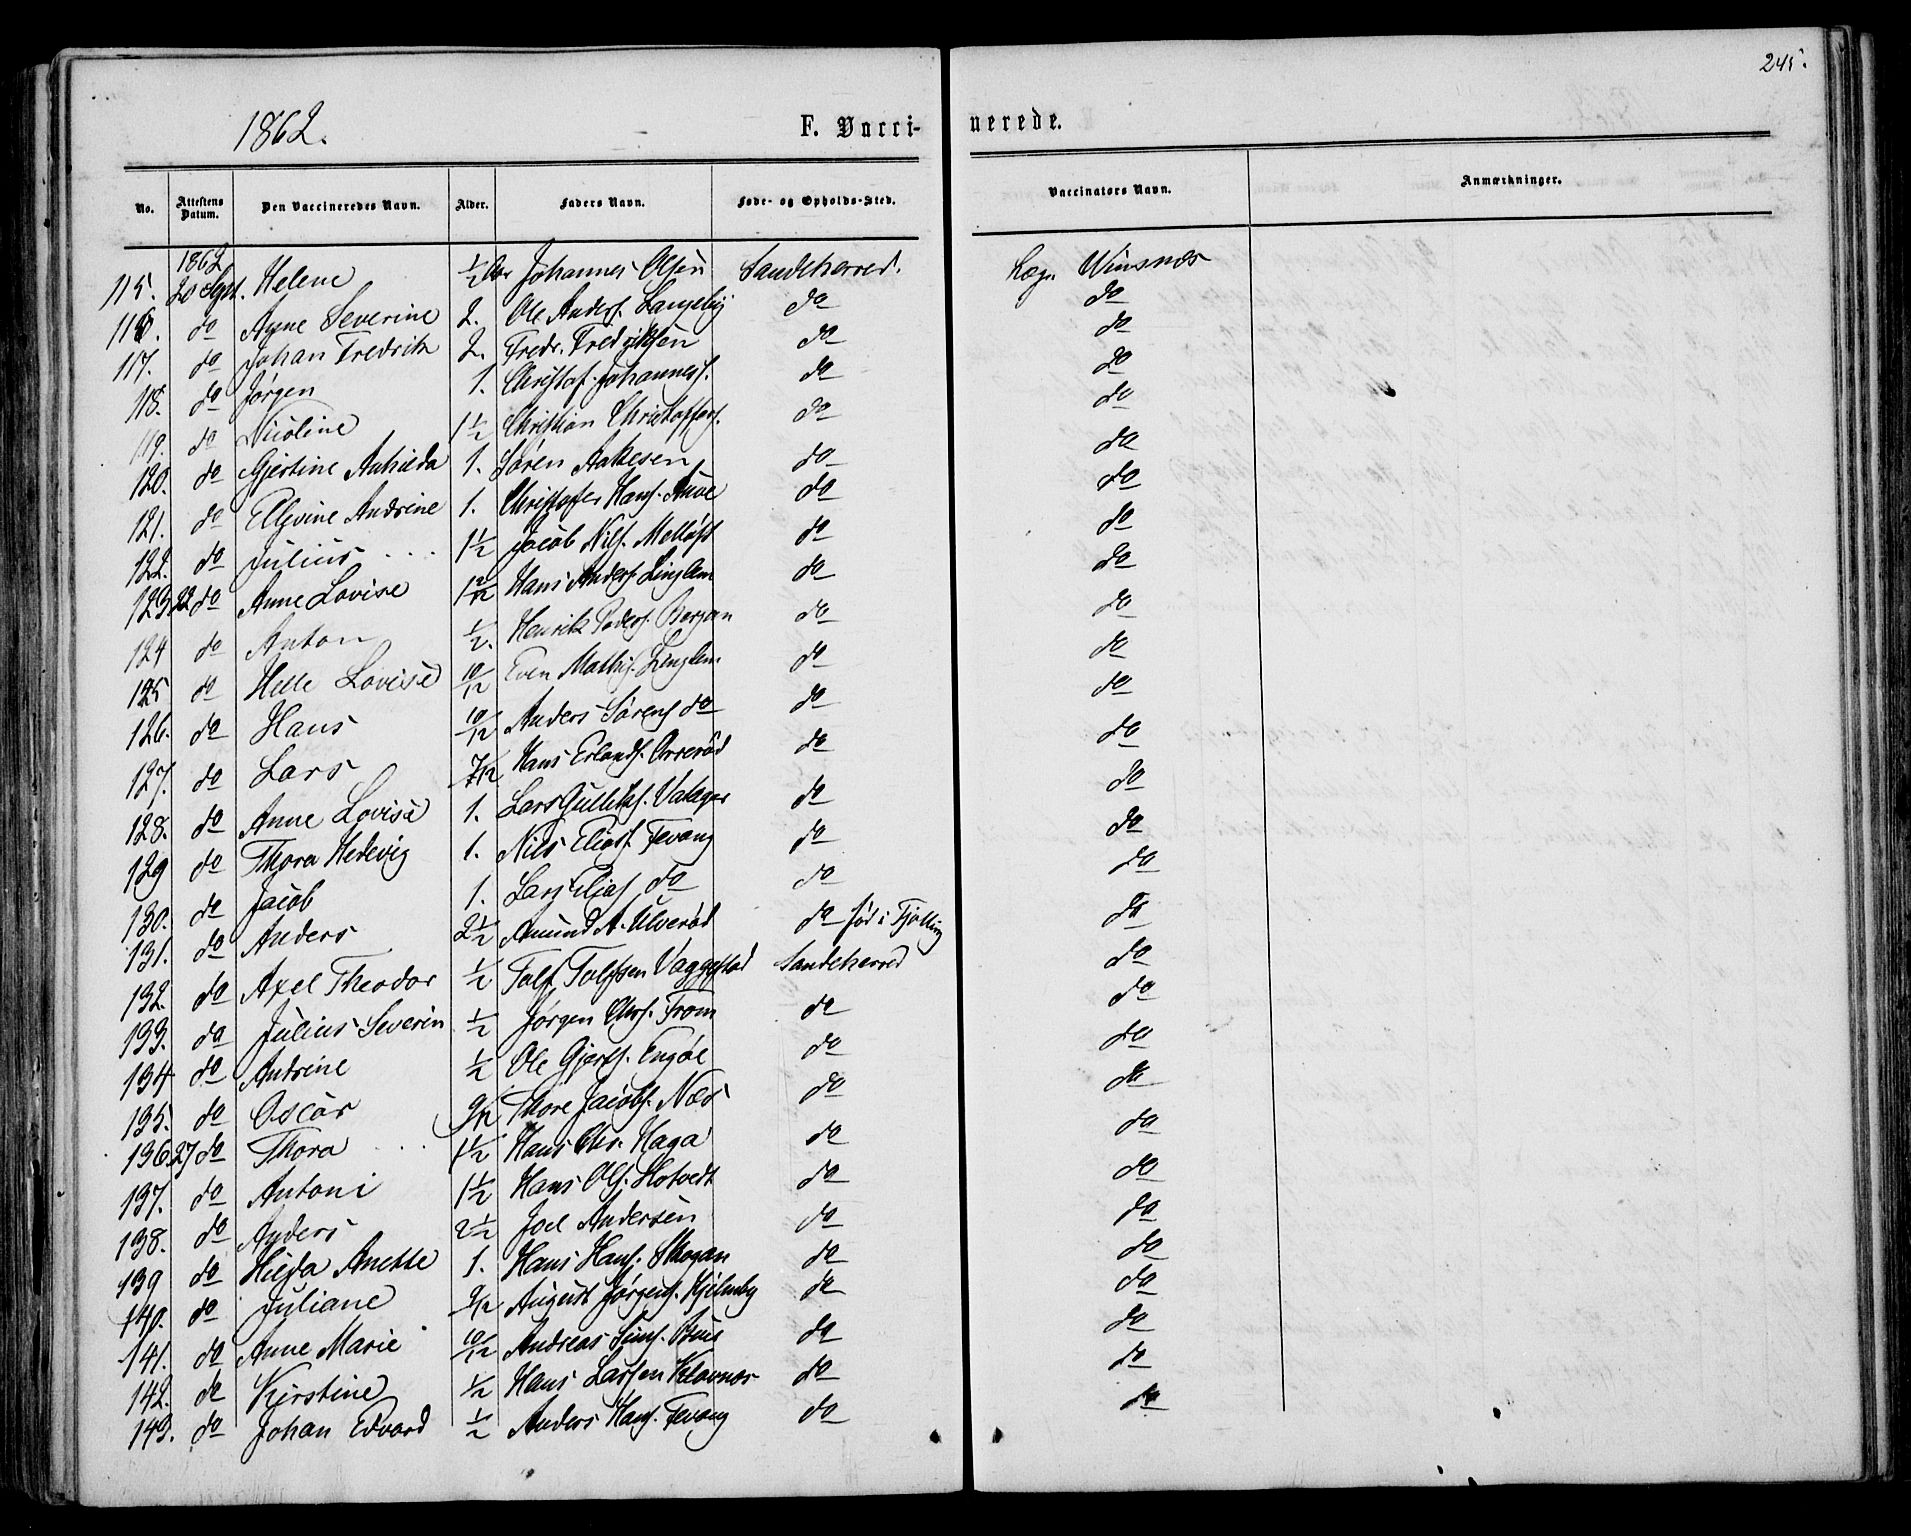 245.
1862.
F. Vacci- nerede.
No. Attestens Datum. Den Vaccineredes Navn. Alder. Faders Navn. Føde- og Opholds-Sted. Vaccinatørs Navn. Anmærkninger.
1862
115. 20 Sept. Helene 1/2 Aar Johannes Olsen Sandeherred. Læge Winsnes
116. do Agne Severine 2. Ole Anders. do do
117. do Johan Fredrik 2. Fredr. Fredriksen do do
118. do Jørgen 1. Christof. Johannes. do do
119. do Nicoline 1 1/2 Christian Christoffers. do do
120. do Gjertine Mathilda 1. Søren Aakesen do do
121. do Ellevine Andrine 1. Christoffer Hans. do do
122. do Julius 1 1/2 Jacob Nils. do do
123 22 do Anne Lovise 1 2/12 Hans Anders. Linglem do do
124 do Anton 1/2. Henrik Peders. Bergan do do
125 do Helle Lovise 10/12 Even Mathis. Linglem do do
126. do Hans 10/12 Anders Sørens. do do do
127. do Lars 7/12 Hans Erlands. Orrerød do do
128. do Anne Lovise 1. Lars Gulliks. Valager do do
129 do Thora Hedevig 1. Nils Elias. Fevang do do
130. do Jacob 1. Lars Elias. do do do
131. do Anders 2 1/2 Amund A. Ulverød do fød i Tjølling do
132. do Axel Theodor 1/2 Tolf Tolfsen Vaggestad Sandeherred do
133. do Julius Severin 1/2 Jørgen Chrs. From do do
134 do Andrine 1/2 Ole Gjerts. Engøe do do
135. do Oscar 9/12 Thore Jacobs. Næs do do
136 27 do Thora 1 1/2 Hans Chr. Haga do do
137. do Antoni 1 1/2 Hans Ols. Hotvedt do do
138. do Anders 2 1/2 Joel Andersen do do
139 do Hilda Anette 1. Hans Hans. Skogan do do
140. do Juliane 9/12 August Jørgens. Hjelmby do do
141. do Anne Marie 10/12 Andreas Sims. do do
142. do Kirstine 1/2 Hans Larsen Klavnes do do
143. do Johan Edvard 1/2 Anders Hans. Fevang do do